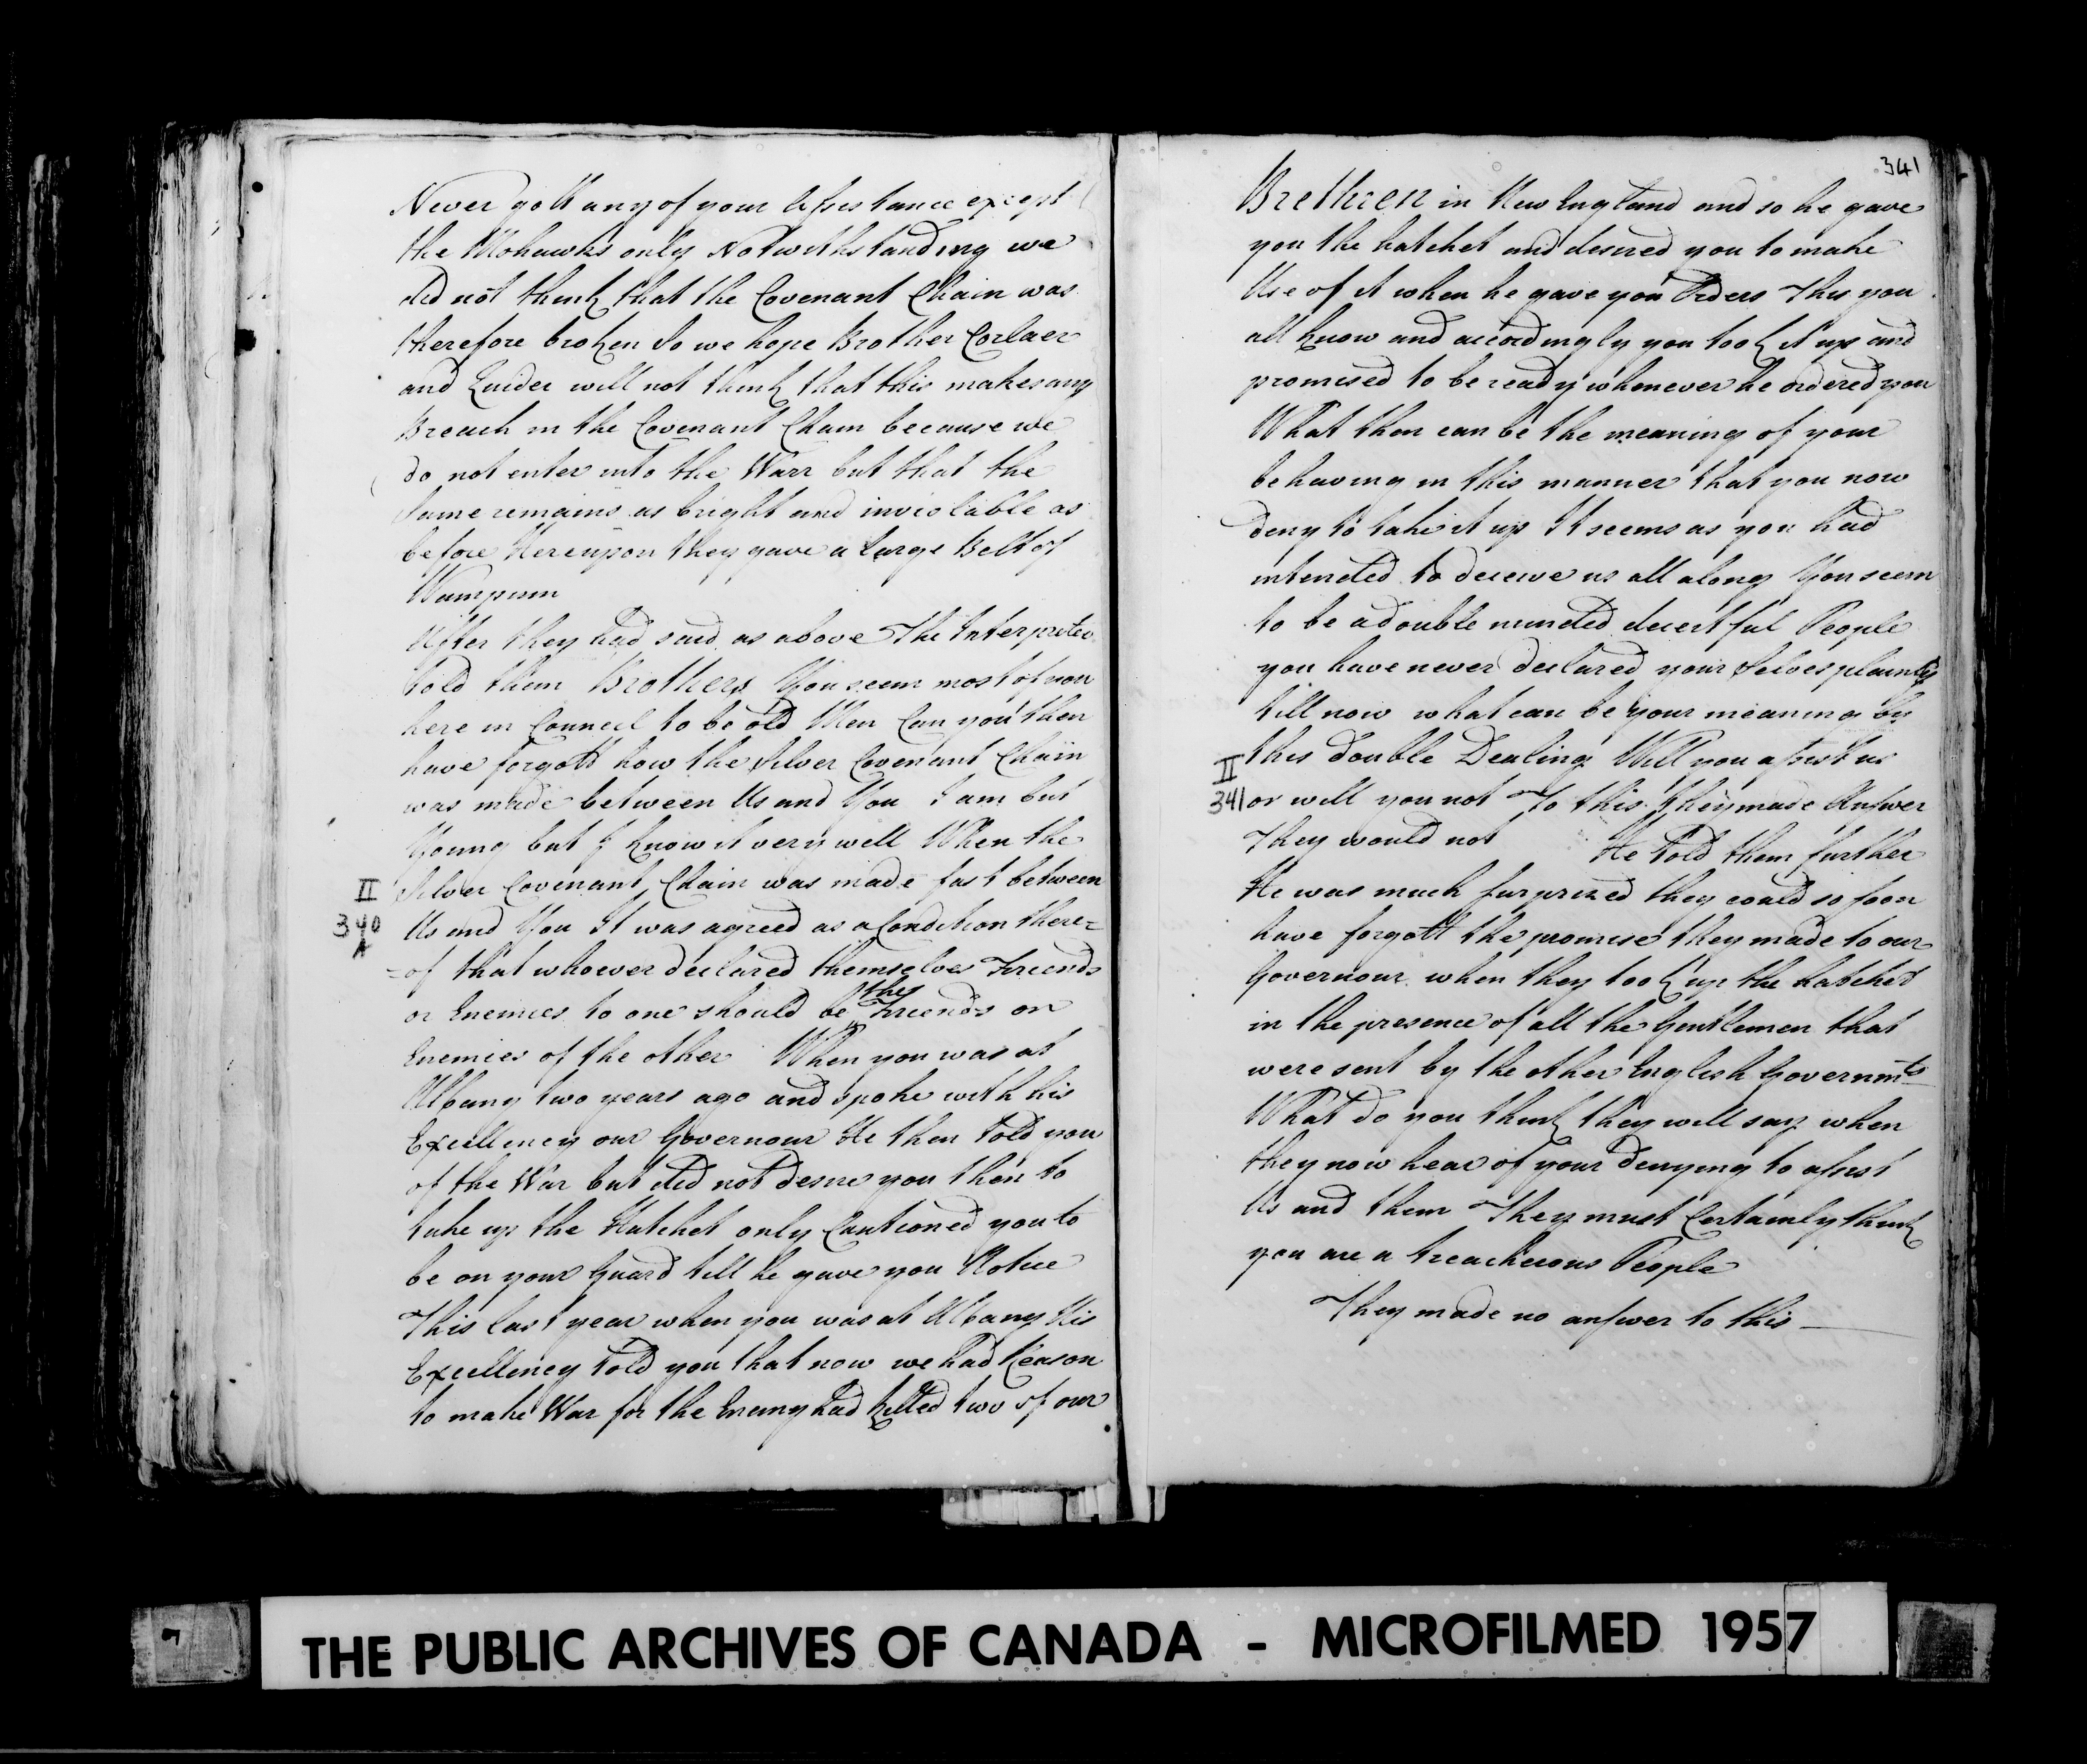 Never gott any of your Assistance except
the Mohawks only Notwithstanding we
did not think that the Covenant Chain was
therefore broken So we hope Brother Corlaer
and Quider will not think that this makes any
Breach in the Covenant Chain because we
do not enter into the Warr but that the
Same remains as bright and inviolable as
before Hereupon they gave a Large Belt of
Wampum
After they had said as above The Interpreter
told them Brothers You seem most of you
here in Council to be old Men Can you then
have forgott how the Silver Covenant Chain
was made between Us and You I am but
Young but I know it very well When the
II
Silver Covenant Chain was made fast between
340
A
Us and You It was agreed as a Condition there=
=of that whoever declared themselves Friends
or Enemies to one should be the Friends or
Enemies of the other When you was at
Albany two years ago and spoke with his
Excellency our Governour He then told you
of the War but did not desire you then to
take up the Hatchet only Cautioned you to
be on your Guard till he gave you Notice
This last year when you was at Albany His
Excellency told you that now we had Reason
to make War for the Enemy had killed two of our
341
Brethren in New England and so he gave
you the hatchet and desired you to make
Use of it when he gave you Orders This you
all know and accordingly you took it up and
promised to be ready whenever he ordered you
What then can be the meaning of your
behaving in this manner that you now
deny to take it up It seems as you had
intended to deceive us all along You seem
to be a double minded deceitful People
you have never declared your Selves plainly
till now what can be your meaning by
II
this double Dealing Will you assist us
341
or will you not To this they made Answer
They would not He Told them further
He was much surprized they could so soon
have forgott the promise they made to our
Governour when they took up the hatchet
in the presence of all the Gentlemen that
were sent by the other English Governmts
What do you think they will say when
they now hear of your denying to assist
Us and them They must Certainly think
you are a treacherous People
They made no answer to this —
THE PUBLIC ARCHIVES OF CANADA - MICROFILMED 1957